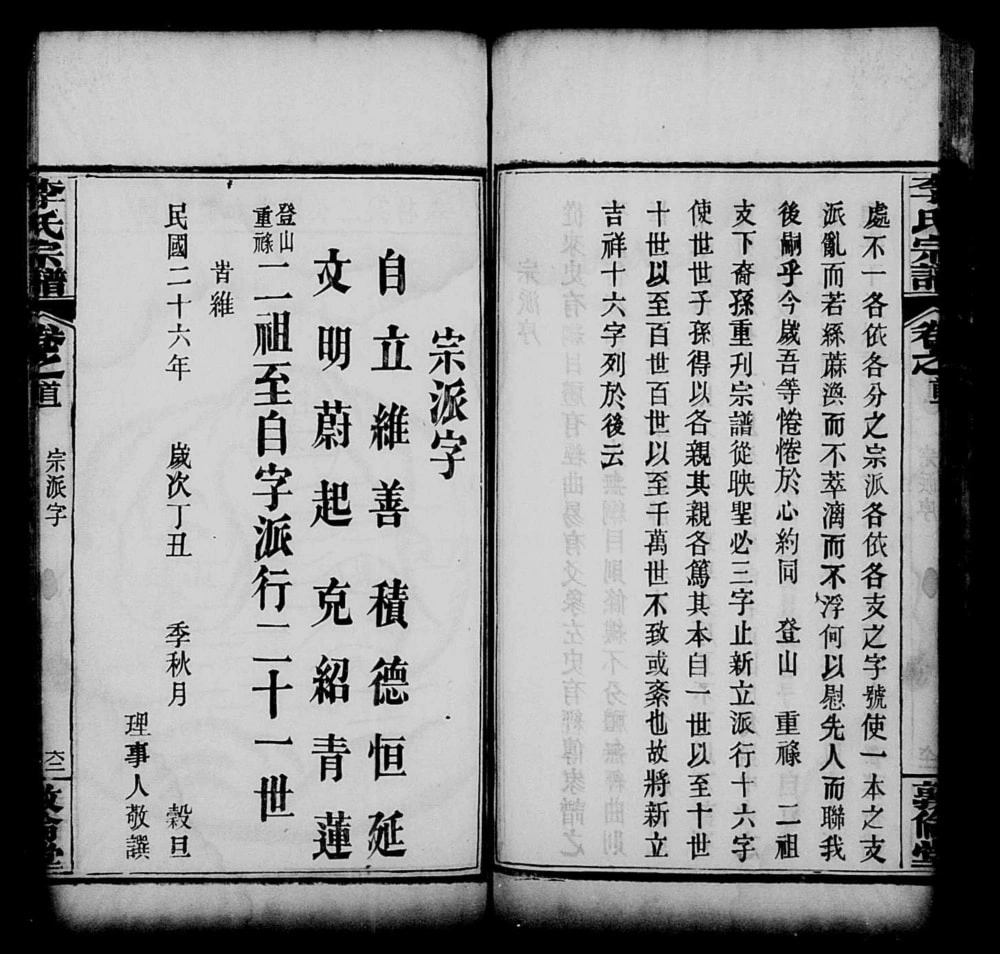 李氏宗譜 卷之首 敦倫堂
處不一各依各分之宗派各依各支之字號使一本之支
派亂而若絲蔴渙而不萃漓而不浮何以慰先人而聯我
後嗣乎今歲吾等惓惓於心約同 登山 重祿 二祖
支下裔孫重刋宗譜從映聖必三字止新立派行十六字
使世世子孫得以各親其親各篤其本自一世以至十世
十世以至百世百世以至千萬世不致或紊也故將新立
吉祥十六字列於後云
宗派字
自立維善積德恒延
文明蔚起克紹青蓮
登山
重祿
二祖至自字派行二十一世
旹維
民國二十六年 歲次丁丑 季秋月 穀旦
理事人敬譔
李氏宗譜 卷之首 宗派字 敦倫堂